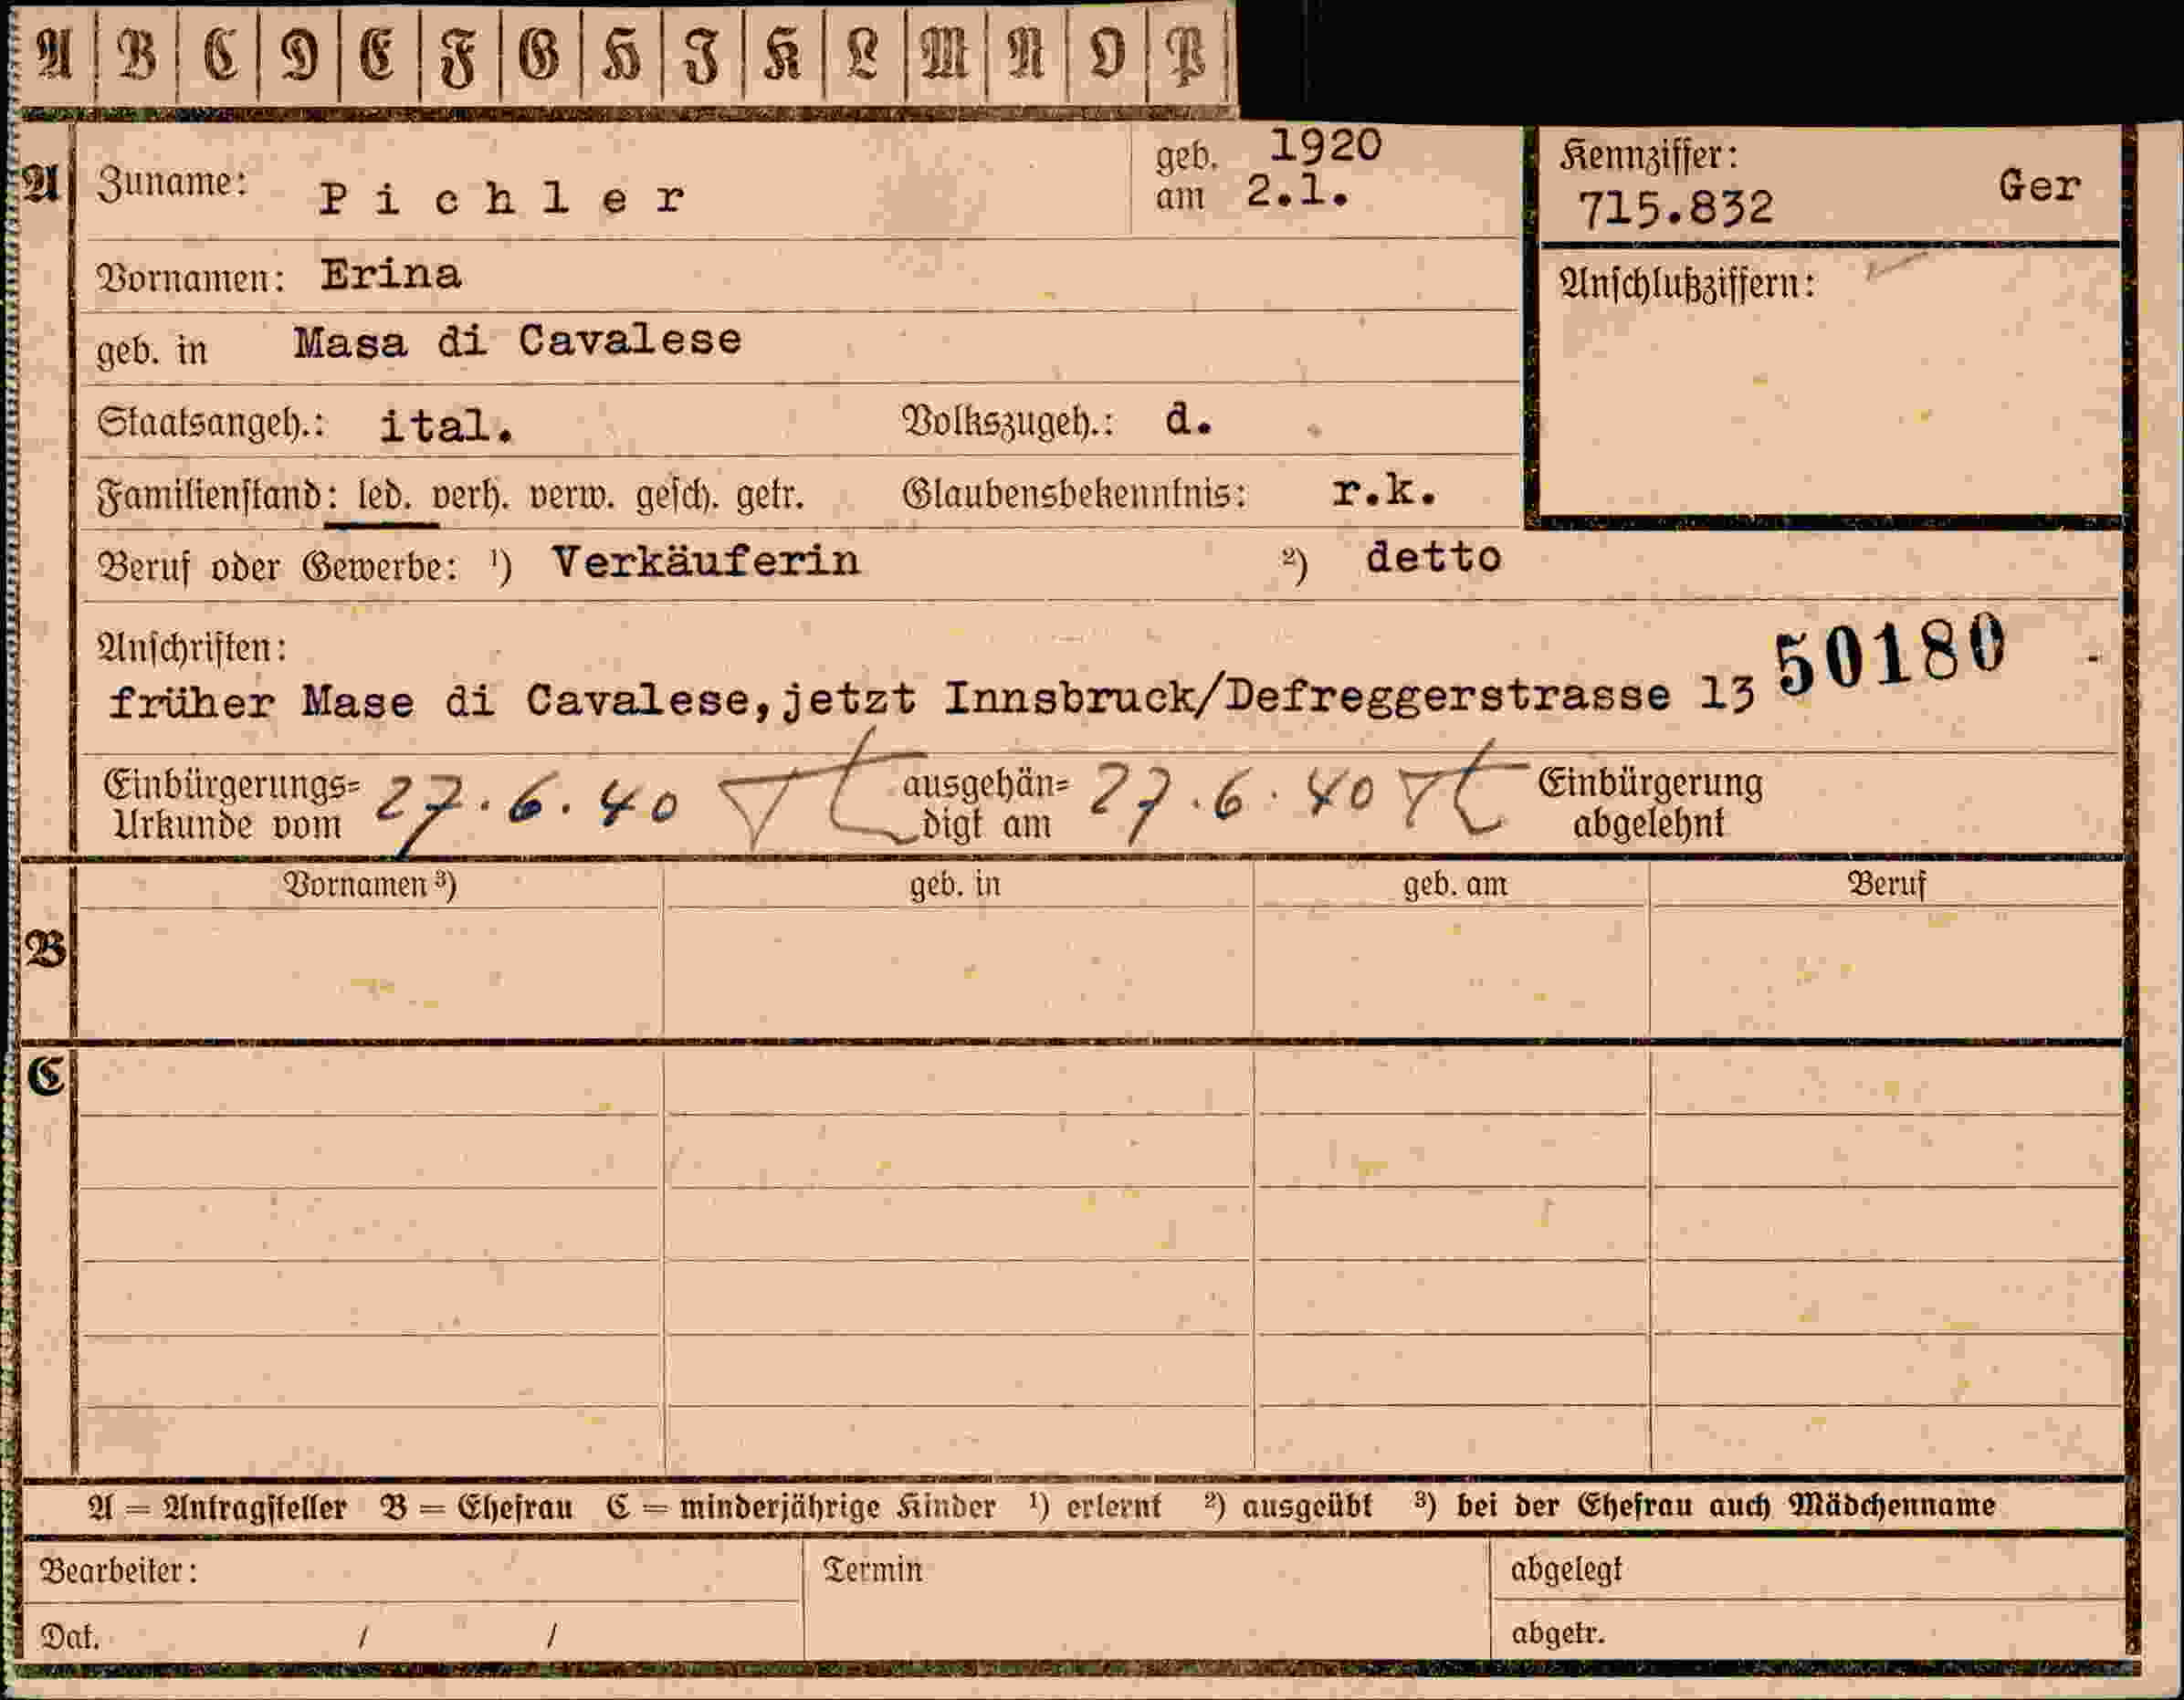 A B C D E F G H I K L M N O P
A Zuname: Pichler geb. am 1920 2.1. Kennziffer: 715.832 Ger
Vornamen: Erina Anschlußziffern:
geb. in Masa di Cavalese
Staatsangeh.: ital. Volkszugeh.: d.
Familienstand: led. verh. verw. gesch. getr. Glaubensbekenntnis: r.k.
Beruf oder Gewerbe: ¹) Verkäuferin ²) detto
Anschriften: 50180
früher Mase di Cavalese, jetzt Innsbruck/Defreggerstrasse 13
Einbürgerungs= Urkunde vom 27.6.40 ausgehän= digt am 27.6.40 Einbürgerung abgelehnt
B Vornamen ³) geb. in geb. am Beruf
C
A = Antragsteller B = Ehefrau C = minderjährige Kinder ¹) erlernt ²) ausgeübt ³) bei der Ehefrau auch Mädchenname
Bearbeiter: Termin abgelegt
Dat. / / abgetr.